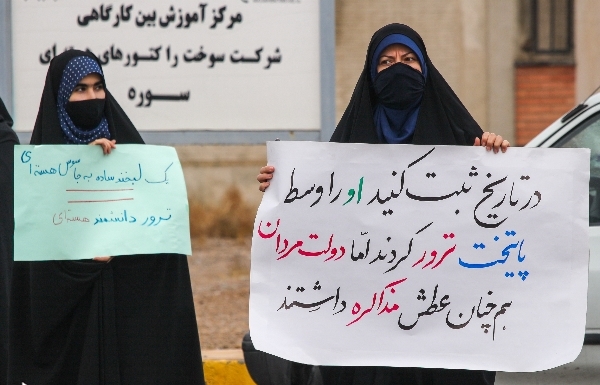 مرکز آموزش بین کارگاهی
شرکت سوخت راکتورهای هسته ای
سوره
یک لبخند ساده به جاسوس هسته ای
=
ترور دانشمند هسته‌ای
در تاریخ ثبت کنید او را وسط
پایتخت ترور کردند امّا دولت مردان
هم چنان عطش مذاکره داشتند